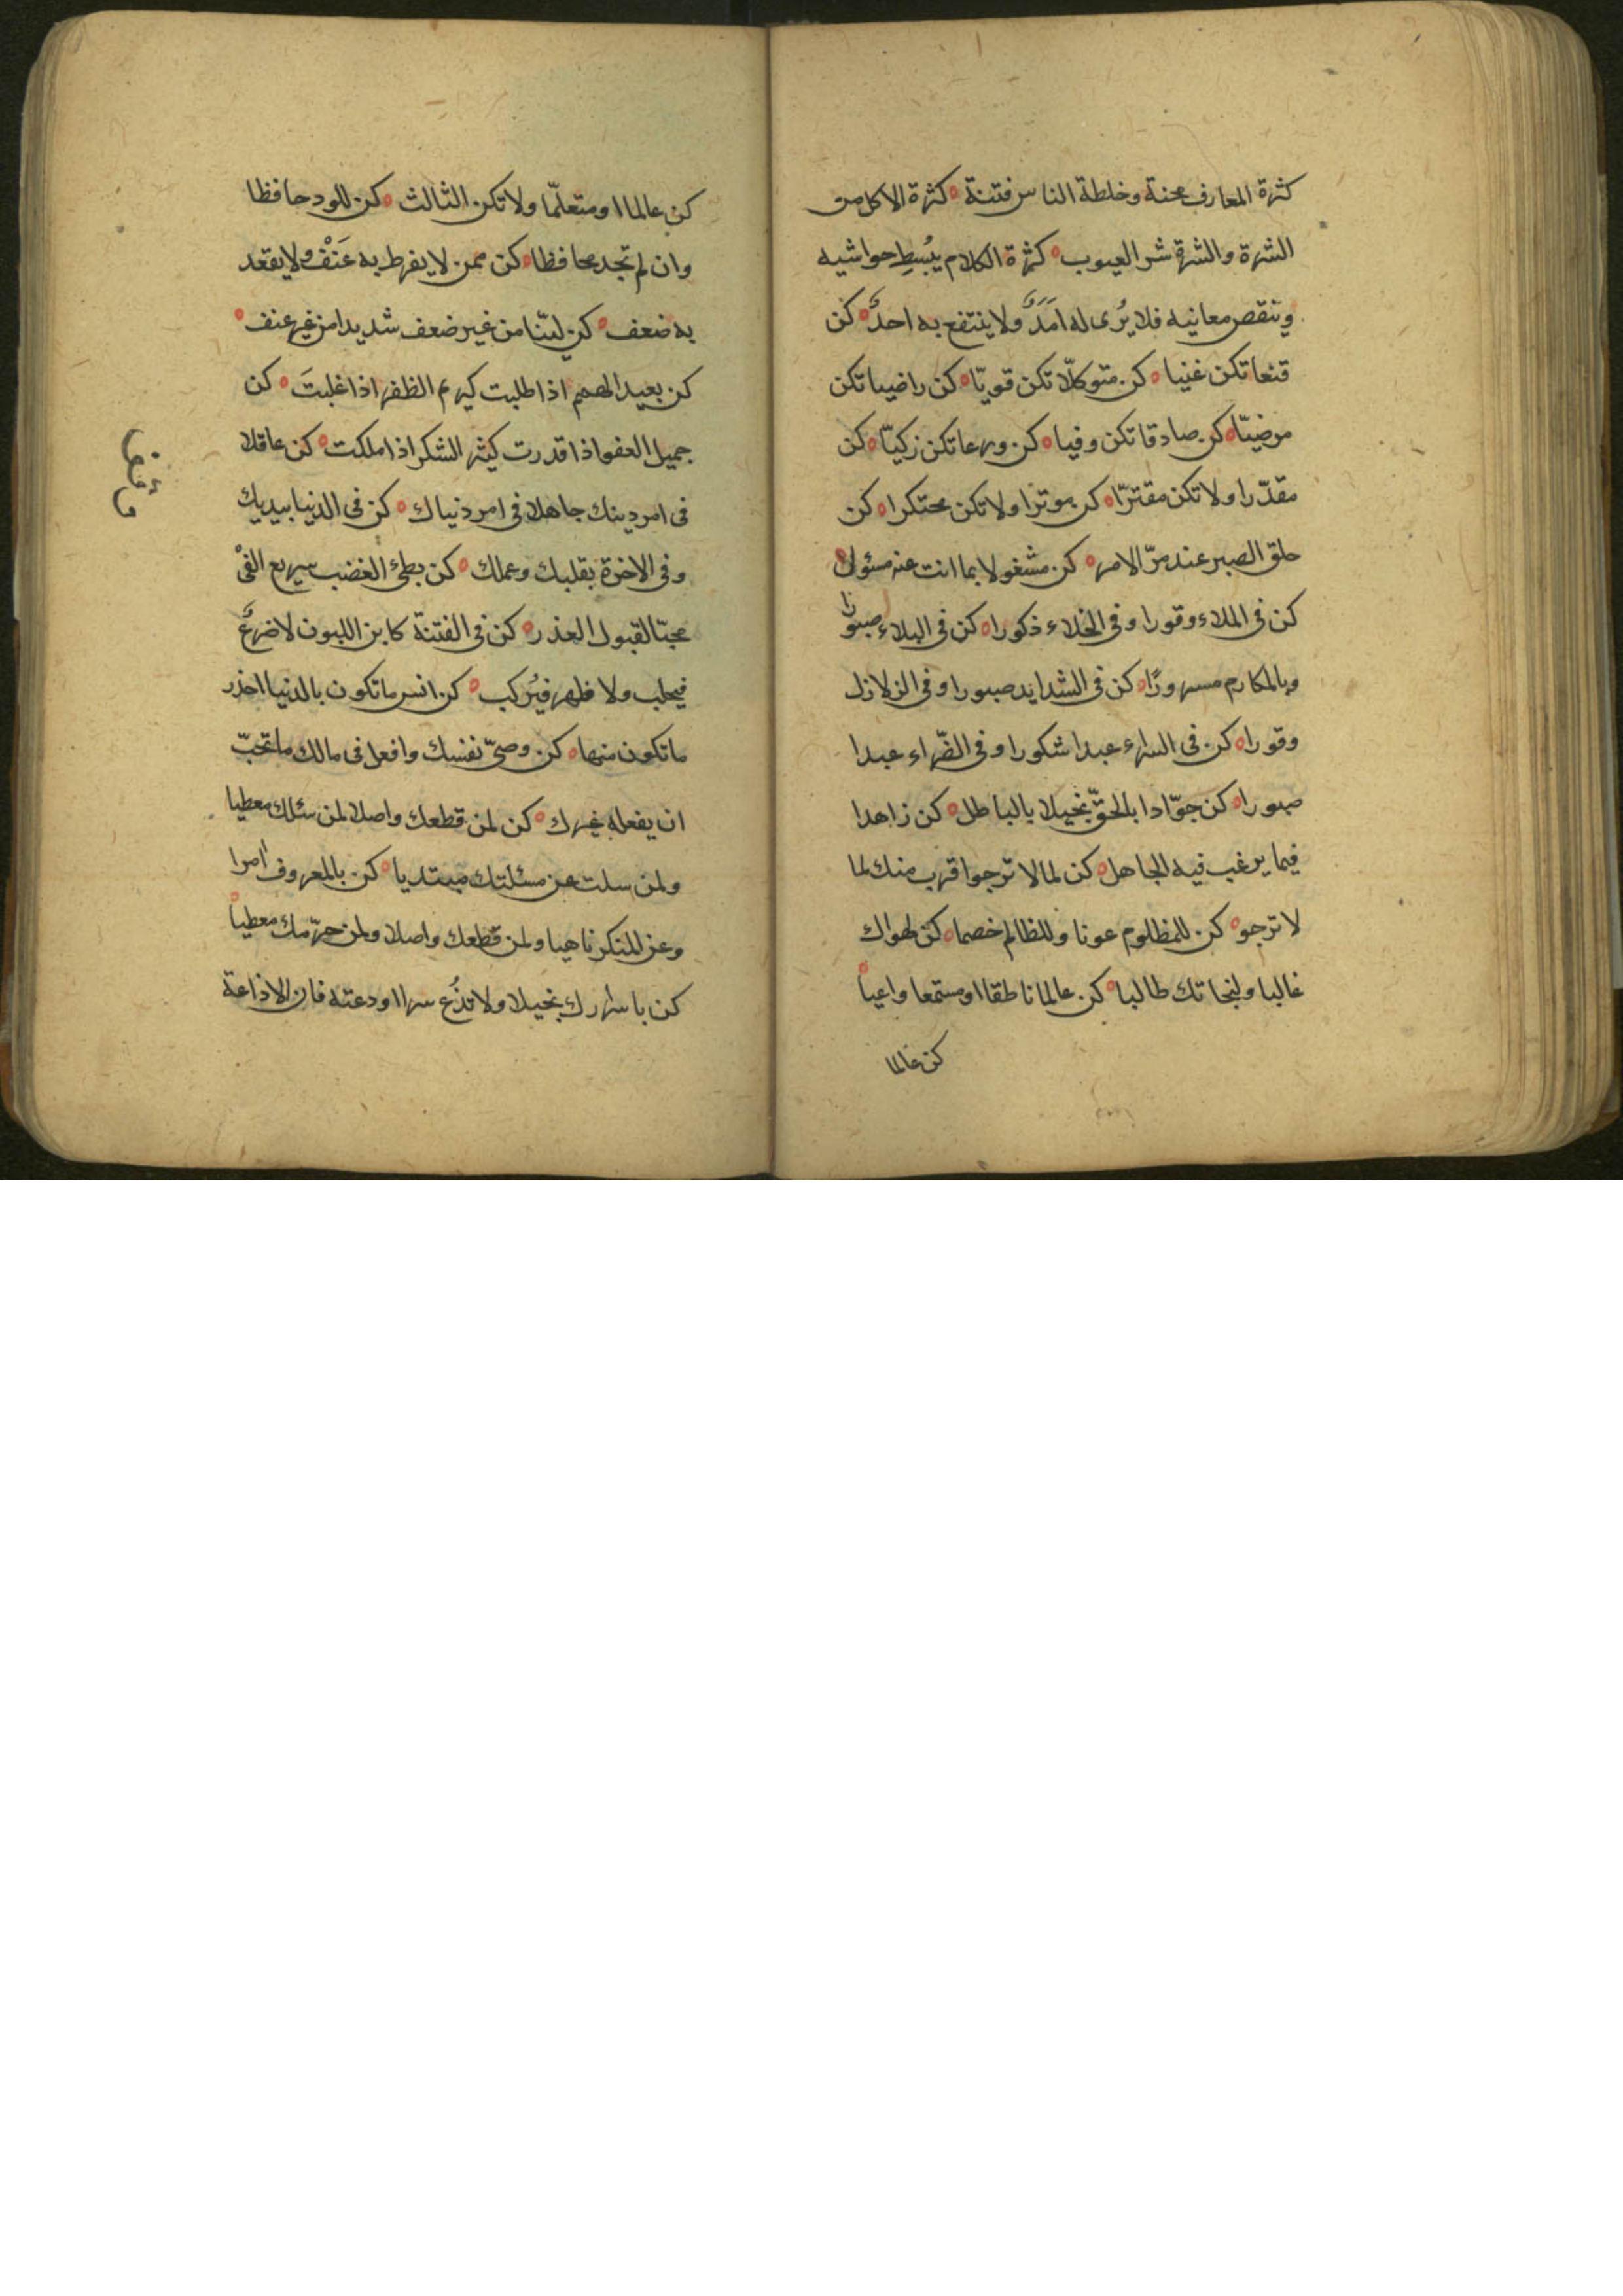 كثرة المعارف محنة وخلطة الناس فتنة ه كثرة الاكل من
الشره والشره شر العيوب ه كثرة الكلام يبُسطِ حواشيه
وتنقص معانيه فلا يُرى له امَدٌ ولا ينتفع به احدٌ ه كن
قنعا تكن غنيا ه كن متوكلّا تكن قويّا ه كن راضيا تكن
مرضيّا ه كن صادقا تكن وفيا ه كن ورعا تكن زكيّا ه كن
مقدّرا ولا تكن مقترّا ه كن موثرا ولا تكن محتكرا ه كن
حلو الصبر عند مرّ الامر ه كن مشغولا بما انت عنه مسئول ه
كن فى الملاء وقورا وفى الخلاء ذكورا ه كن فى البلاء صبورا
وبالمكارم مسرورًا ه كن فى الشدايد صبورا وفى الزلازل
وقورا ه كن فى السراء عبدا شكورا وفى الضّراء عبدا
صبورا ه كن جوّادا بالحقّ بخيلا بالباطل ه كن زاهدا
فيما يرغب فيه الجاهل ه كن لما لا ترجوا قرب منك لما
لا ترجو ه كن للمظلوم عونا وللظالم خصما ه كن لهواك
غالبا ولنجاتك طالبا ه كن عالما ناطقا او مستمعا واعيا ه
كن عالما
كن عالما او متعلّما ولا تكن الثالث ه كن للود حافظا
وان لم تجد محافظا ه كن ممن لا يفرط به عَنْف ولا يقعد
به ضعف ه كن ليّنا من غير ضعف شديدا من غير عنف ه
كن بعيد الهمم اذا طلبت كريم الظفر اذا غلبتَ ه كن
جميل العفو اذا قدرت كثير الشكر اذا ملكت ه كن عاقلا
فى امر دينك جاهلا فى امر دنياك ه كن فى الدنيا بيديك
وفى الاخرة بقلبك وعملك ه كن بطئ الغضب سريع الفئ
محبّا لقبول العذر ه كن فى الفتنة كابن اللبون لا ضرعٌ
فيحلب ولا ظهر فيُركب ه كن انس ما تكون بالدنيا احذر
ما تكون منها ه كن وصىّ نفسك وافعل فى مالك ما تحبّ
ان يفعله غيرك ه كن لمن قطعك واصلا لمن سئلك معطيا
ولمن سكت عن مسئلتك مبتديا ه كن بالمعروف امرا
وعن المنكر ناهيا ولمن قطعك واصلا ولمن حرّمك معطيا ه
كن باسرارك بخيلا ولا تذُع سرا اودعته فان الاذاعة